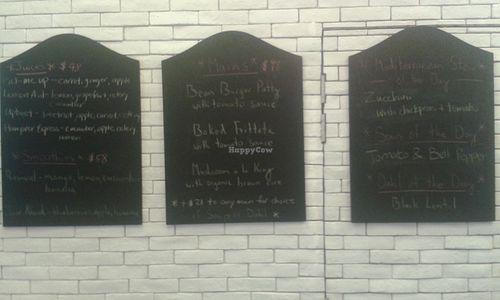 Juices * $48
Pick-me up - carrot, ginger, apple
lemon, grapefruit, celery
cucumber
Upbeet - beetroot, apple, carrot, celery
Hampster Express - cucumber, apple, celery
lemon
* Smoothies * $58
mango, lemon, cucumber
banana
blueberries, apple, banana
* Mains * $98
Bean Burger Patty
with tomato sauce
Baked Frittata
with tomato sauce
Mushroom a la King
with organic brown rice
* + $21 to any main for choice
of Soup or Dahl *
HappyCow
* Mediterranean Stew
of the Day
Zucchini
with chickpeas + tomato
* Soup of the Day *
Tomato & Bell Pepper
* Dahl of the Day
Black Lentil